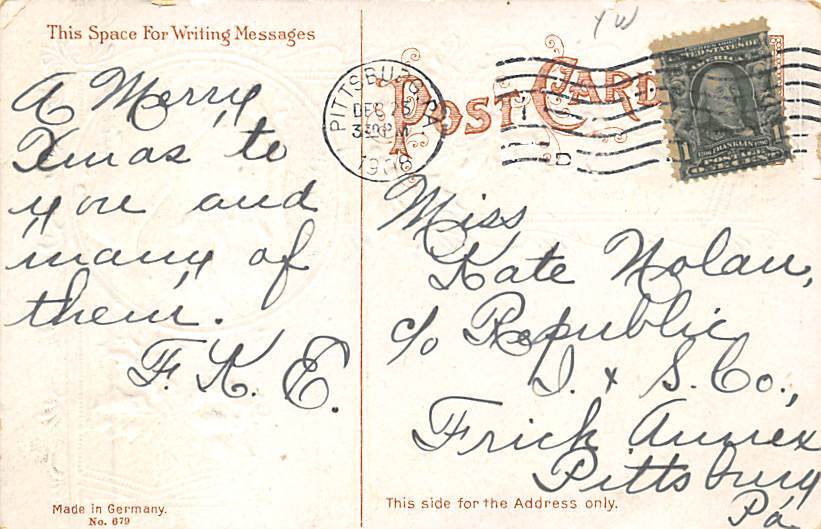 This Space For Writing Messages
A Merry
Xmas to
you and
"many of
them."
F. K. E.
Made in Germany.
No. 679
YW
POST CARD
PITTSBURG, PA.
DEC 25
330PM
1908
D
UNITED STATES OF
AMERICA
1 FRANKLIN 1
POSTAGE
ONE CENT
Miss
Kate Nolan,
c/o Republic
I. & S. Co.,
Frick Annex
Pittsburg
Pa
This side for the Address only.